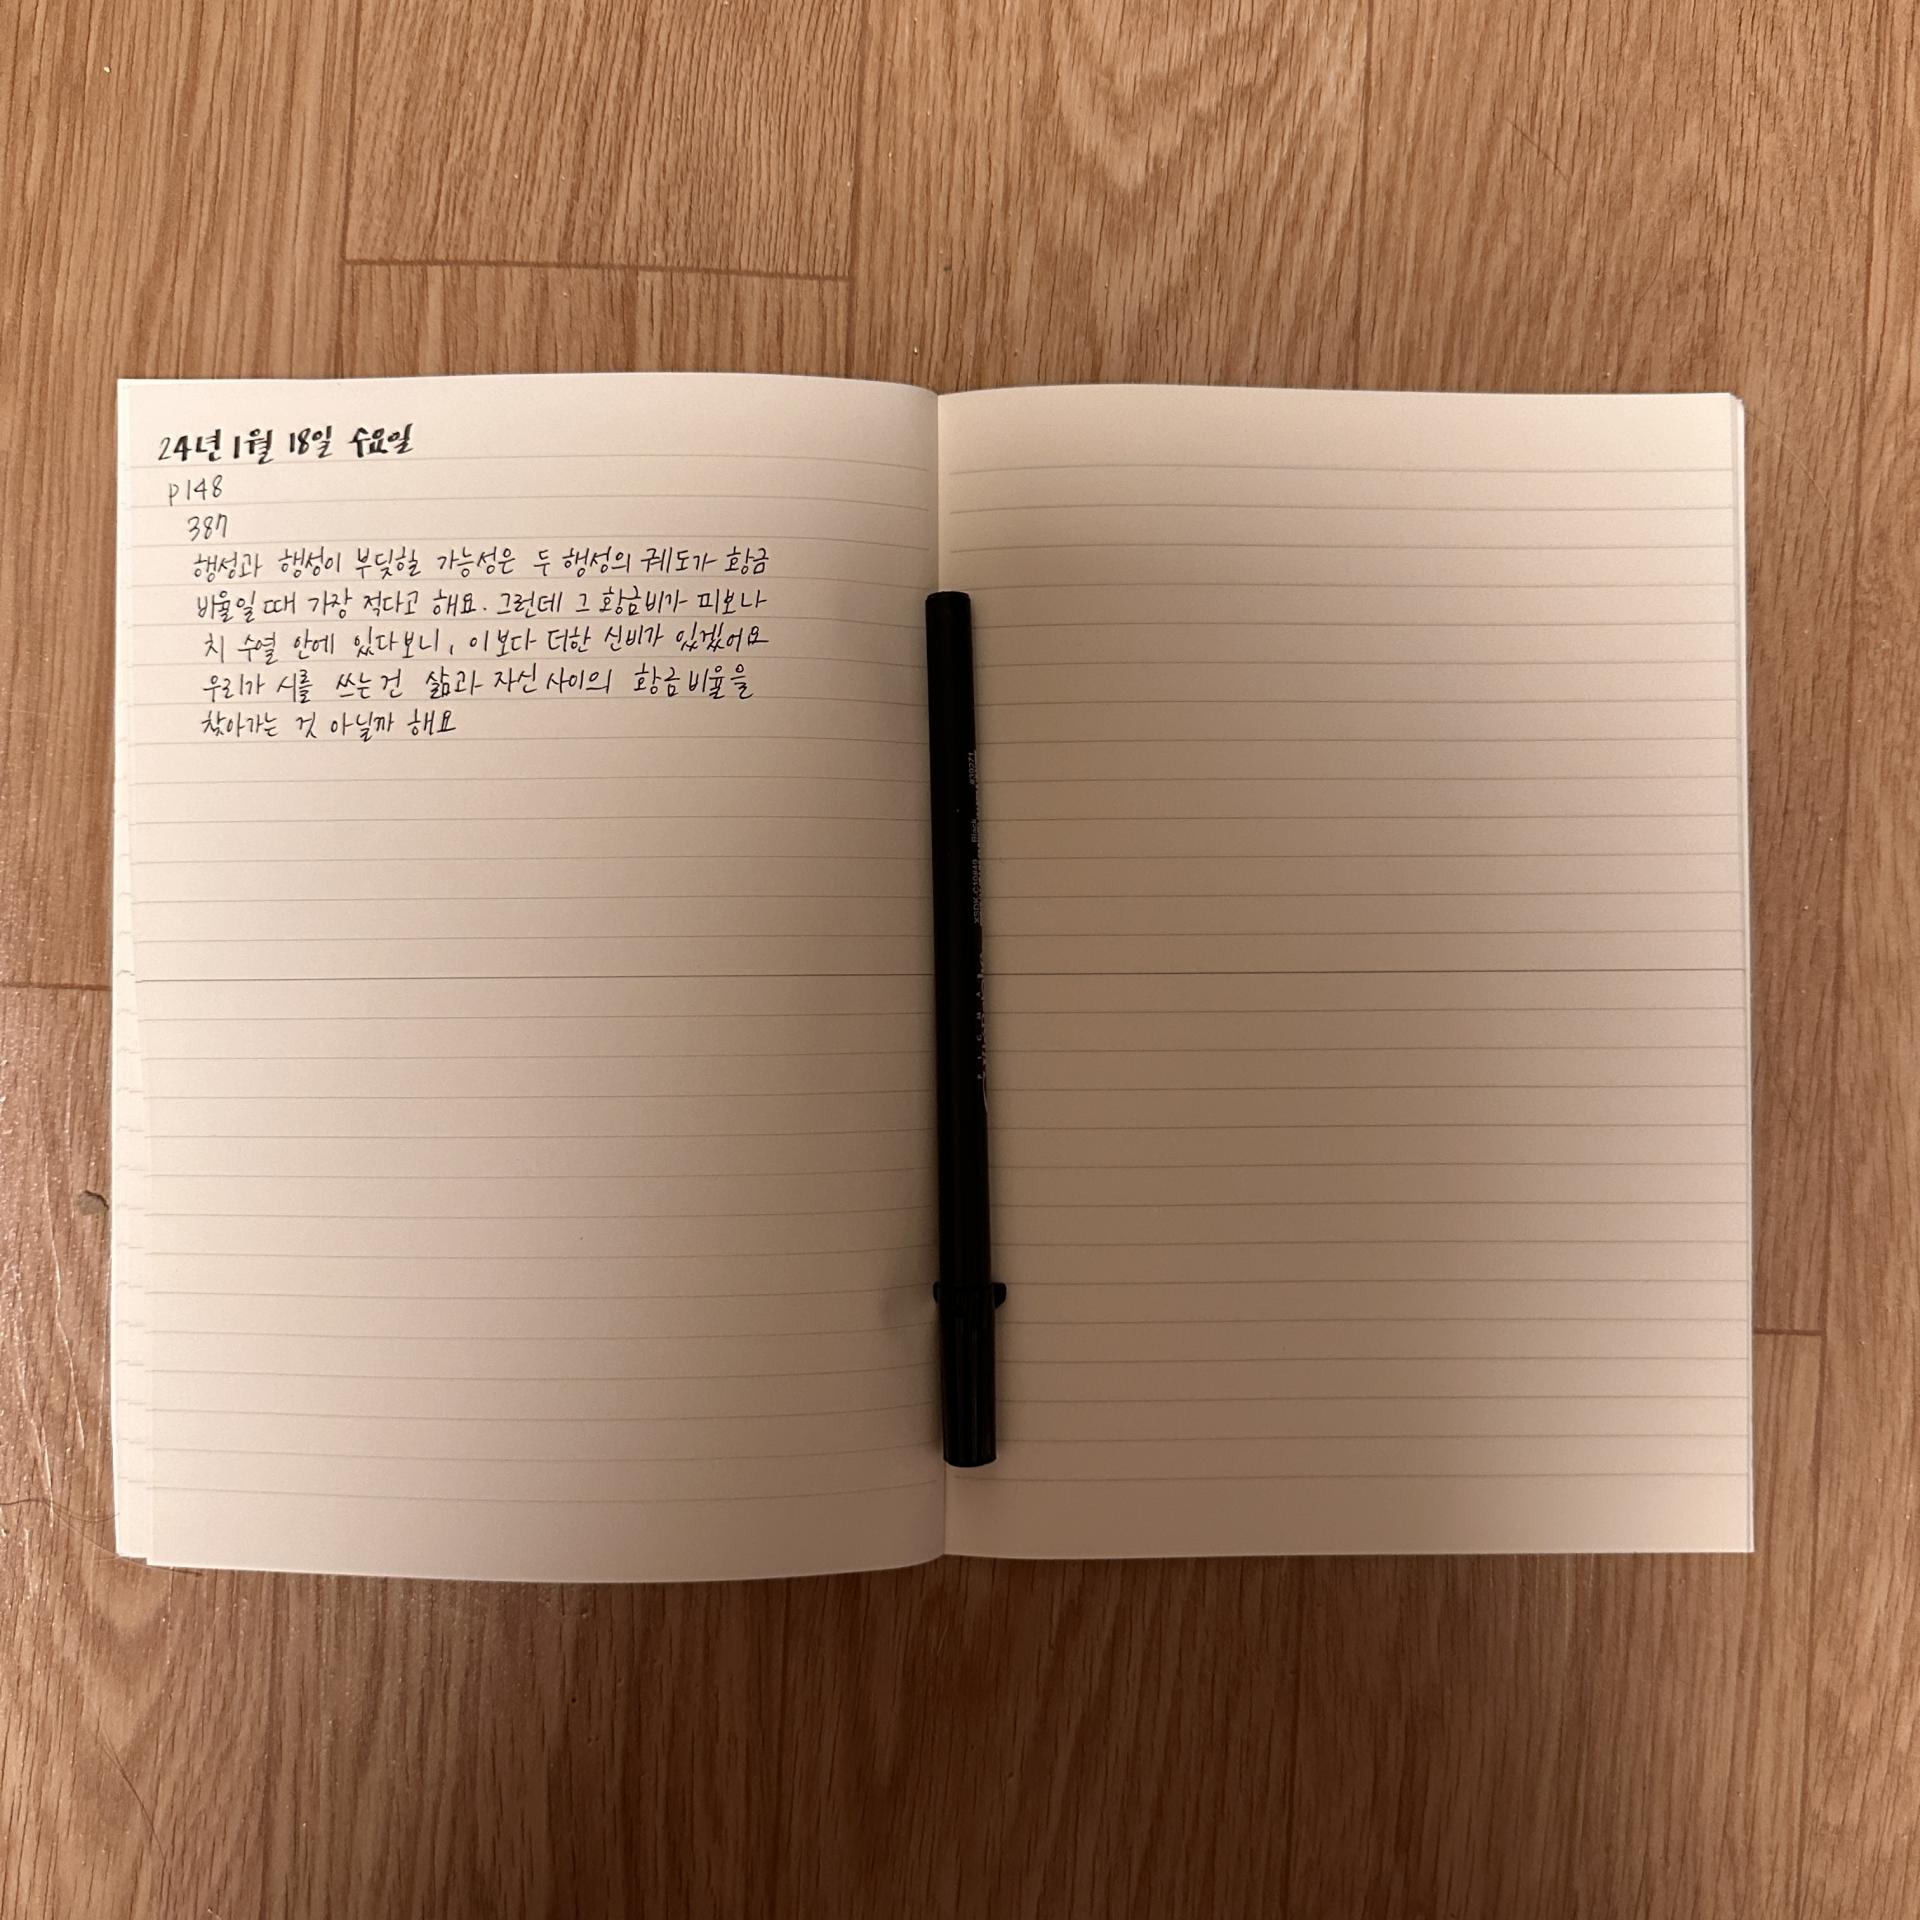 24년 1월 18일 수요일
p148
387
행성과 행성이 부딪힐 가능성은 두 행성의 궤도가 황금
비율일 때 가장 적다고 해요. 그런데 그 황금비가 피보나
치 수열 안에 있다보니, 이보다 더한 신비가 있겠어요
우리가 시를 쓰는건 삶과 자신 사이의 황금비율을
찾아가는 것 아닐까 해요
#39271
Black